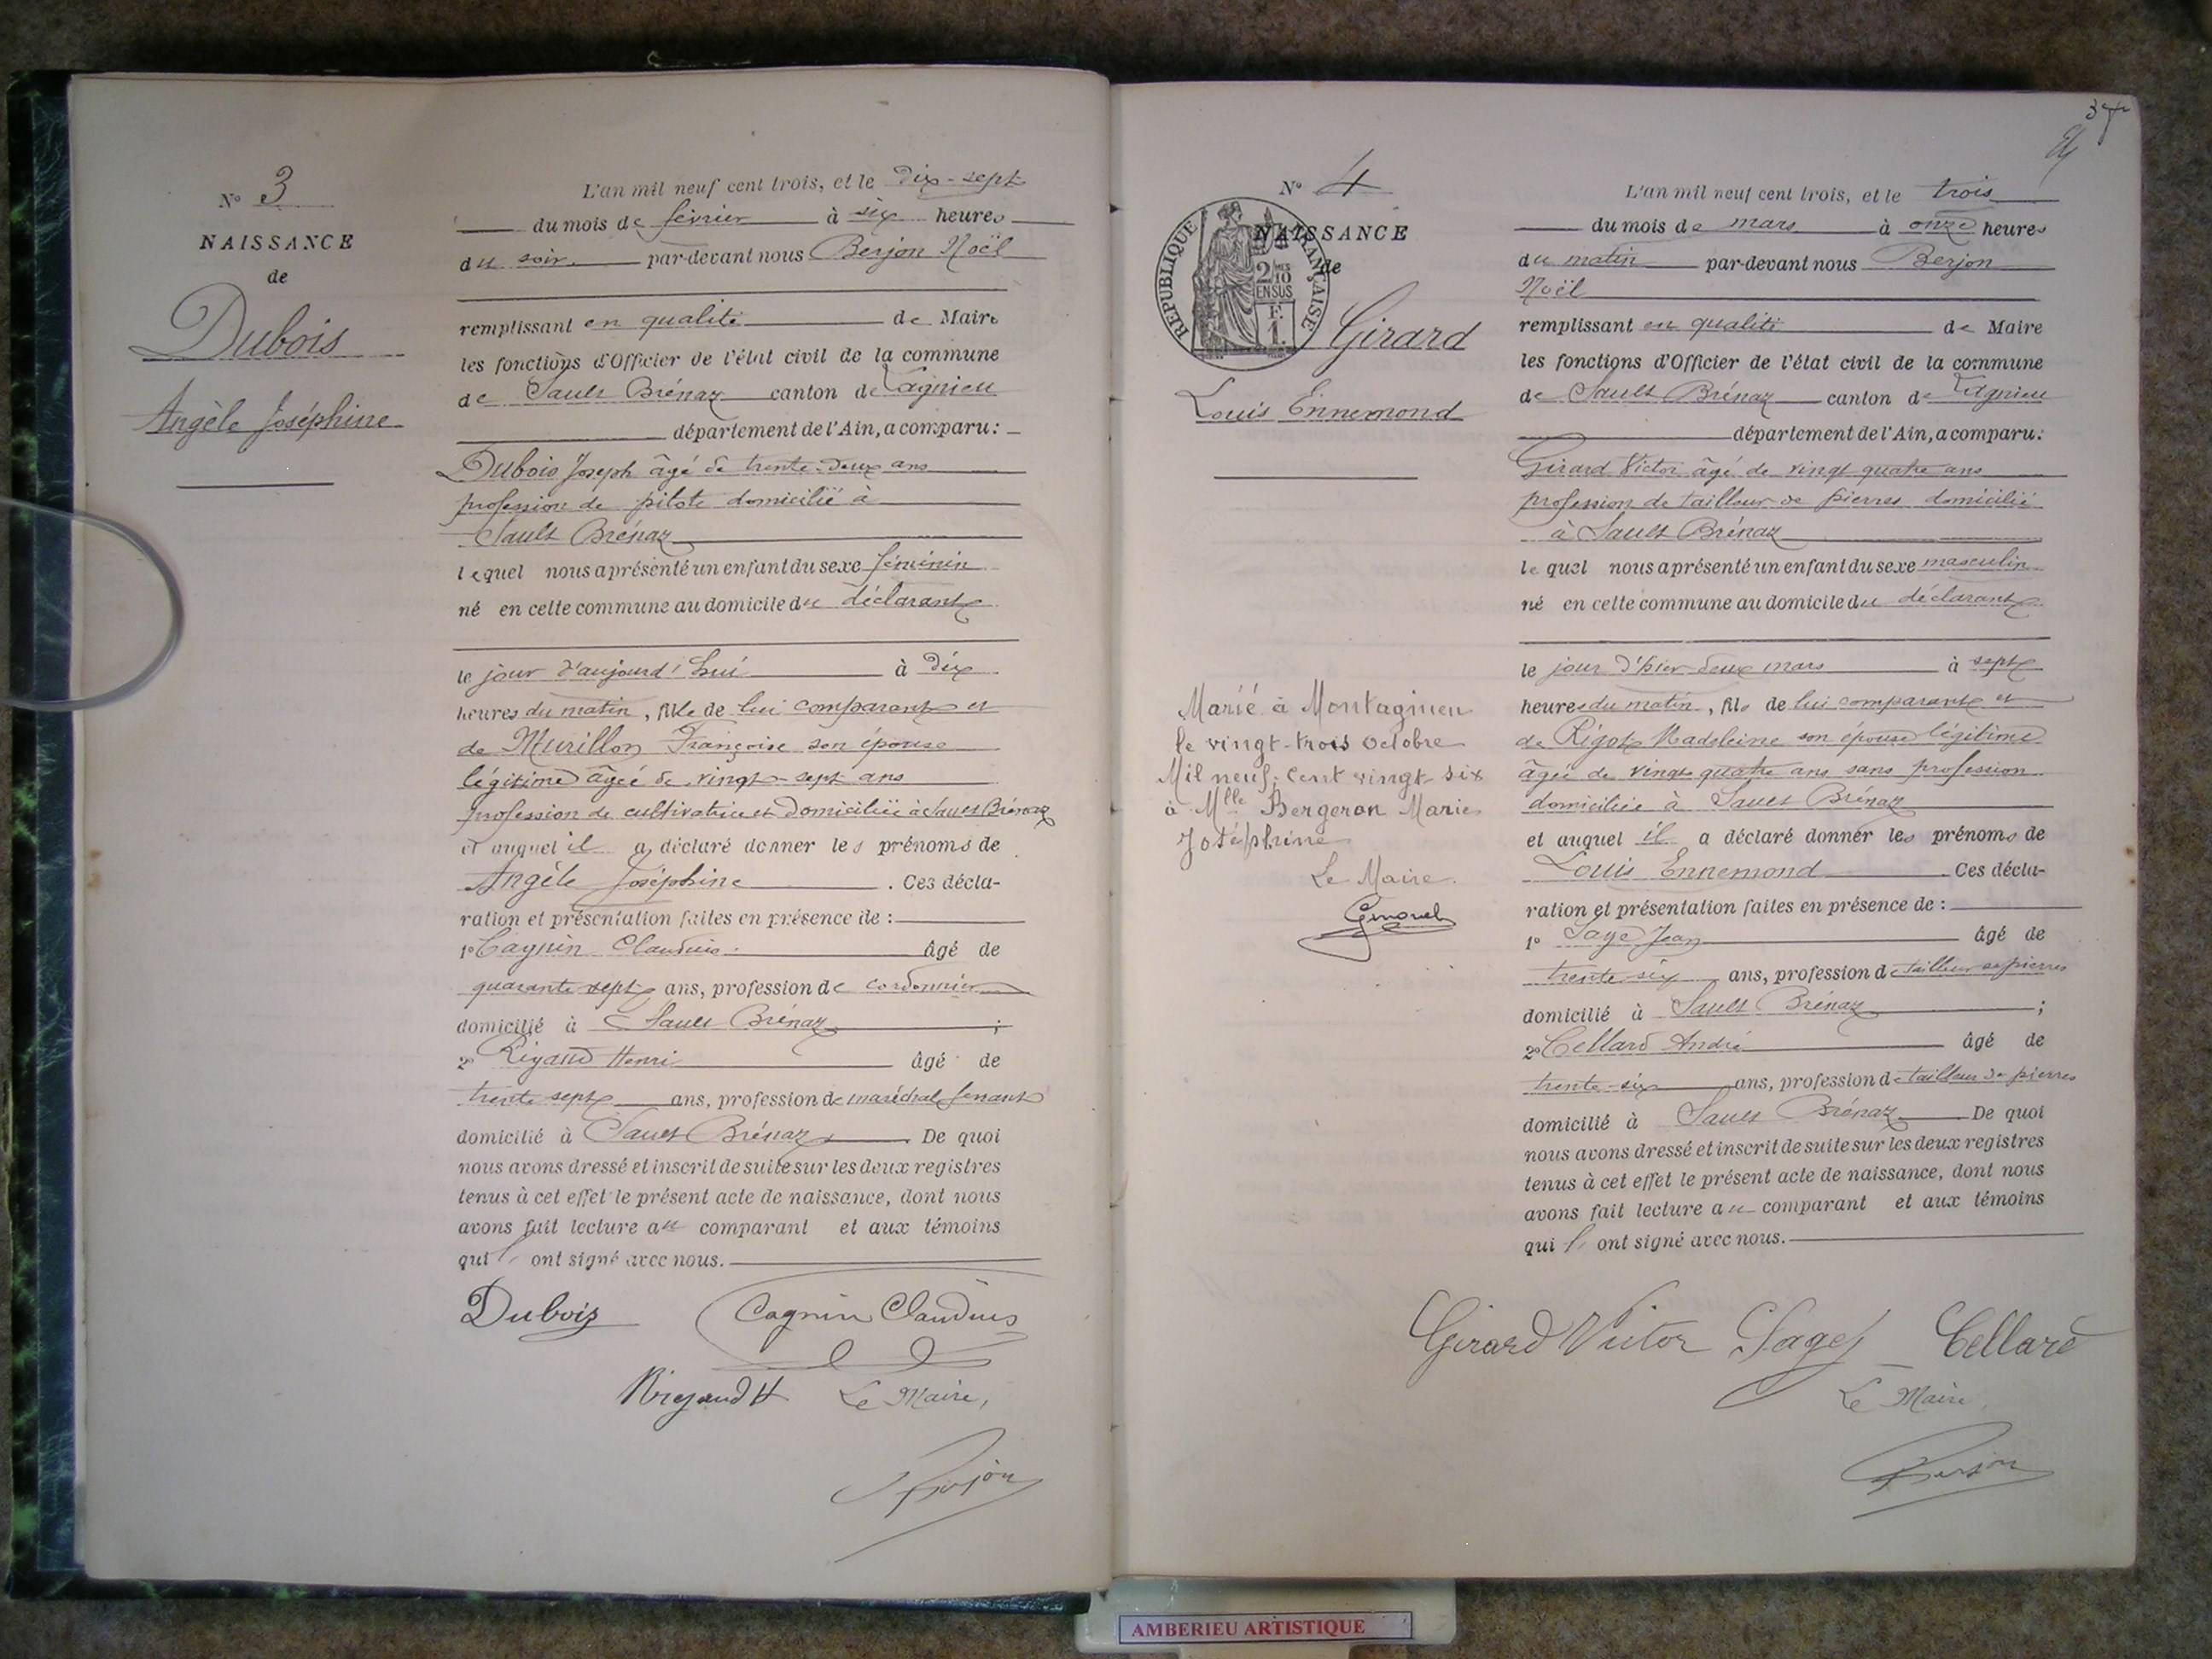 N° 3
NAISSANCE
de
Dubois
Angèle Joséphine
L'an mil neuf cent trois, et le dix-sept
du mois de février à six heures
du soir par-devant nous Berjon Noël
remplissant en qualité de Maire
les fonctions d'Officier de l'état civil de la commune
de Sault Brénaz canton de Lagnieu
département de l'Ain, a comparu :
Dubois Joseph âgé de trente-deux ans
profession de pilote domicilié à
Sault Brénaz
lequel nous a présenté un enfant du sexe féminin
né en cette commune au domicile du déclarant
le jour d'aujourd'hui à dix
heures du matin, fille de lui comparant et
de Murillon Françoise son épouse
légitime âgée de vingt-sept ans
profession de cultivatrice et domiciliée à Sault Brénaz
et auquel il a déclaré donner les prénoms de
Angèle Joséphine. Ces décla-
ration et présentation faites en présence de :
1° Cagnin Claudius âgé de
quarante sept ans, profession de cordonnier
domicilié à Sault Brénaz ;
2° Rigaud Henri âgé de
trente sept ans, profession de maréchal ferrant
domicilié à Sault Brénaz. De quoi
nous avons dressé et inscrit de suite sur les deux registres
tenus à cet effet le présent acte de naissance, dont nous
avons fait lecture au comparant et aux témoins
qui l' ont signé avec nous.
Dubois Cagnin Claudius
Rigaud H Le Maire,
Berjon
37
N° 4
NAISSANCE
de
REPUBLIQUE FRANÇAISE
2 MES
10
EN SUS
F.
1.
Girard
Louis Ennemond
Marié à Montagnieu
le vingt-trois octobre
Mil neuf-cent vingt-six
à Mlle Bergeron Marie
Joséphine
Le Maire.
L'an mil neuf cent trois, et le trois
du mois de mars à onze heures
du matin par-devant nous Berjon
Noël
remplissant en qualité de Maire
les fonctions d'Officier de l'état civil de la commune
de Sault Brénaz canton de Lagnieu
département de l'Ain, a comparu :
Girard Victor âgé de vingt quatre ans
profession de tailleur de pierres domicilié
à Sault Brénaz
lequel nous a présenté un enfant du sexe masculin
né en cette commune au domicile du déclarant
le jour d'hier deux mars à sept
heures du matin, fils de lui comparant et
de Rigot Madeleine son épouse légitime
âgée de vingt quatre ans sans profession
domiciliée à Sault Brénaz
et auquel il a déclaré donner les prénoms de
Louis Ennemond. Ces décla-
ration et présentation faites en présence de :
1° Sage Jean âgé de
trente six ans, profession de tailleur de pierres
domicilié à Sault Brénaz ;
2° Cellard André âgé de
trente-six ans, profession de tailleur de pierres
domicilié à Sault Brénaz De quoi
nous avons dressé et inscrit de suite sur les deux registres
tenus à cet effet le présent acte de naissance, dont nous
avons fait lecture au comparant et aux témoins
qui l' ont signé avec nous.
Girard Victor Sage Cellard
Le Maire,
Berjon
AMBERIEU ARTISTIQUE